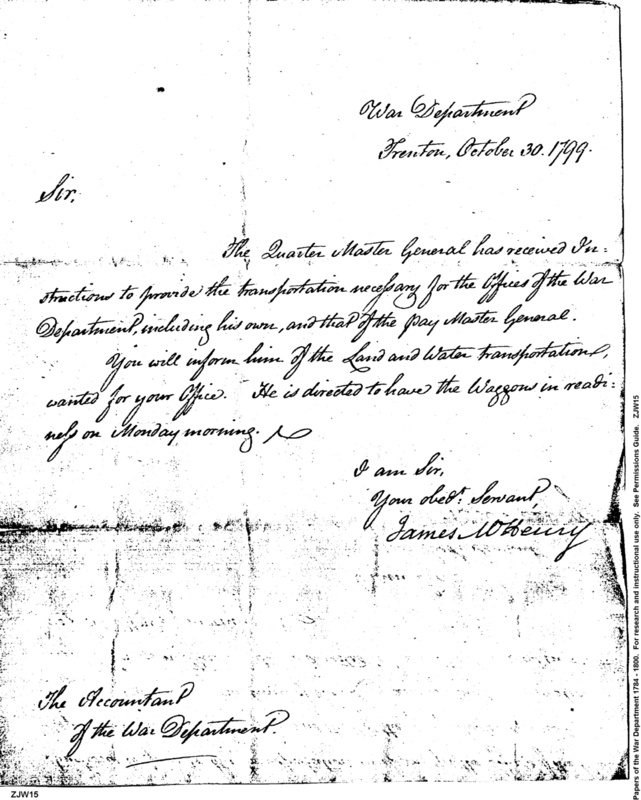 War Department
Trenton, October 30. 1799.
Sir,
The Quarter Master General has received In-
structions to provide the transportation necessary for the Offices of the War
Department, including his own, and that of the Pay Master General.
You will inform him of the Land and Water transportation,
wanted for your Office. He is directed to have the Waggons in readi-
ness on Monday morning.
I am Sir,
Your obedt. Servant,
James McHenry
The Accountant
of the War Department.
ZJW15
Papers of the War Department 1784 - 1800. For research and instructional use only. See Permissions Guide. ZJW15